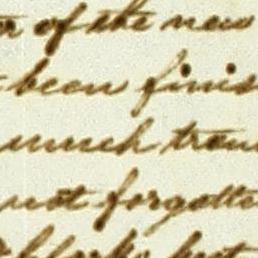 r of the new
been finis
much trou
not forgotte